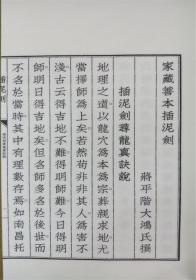 家藏善本插泥劍
蔣平階大鴻氏撰
插泥劍尋龍真訣說
地理之道以龍穴為本宗葬親求地尤
當擇師為上矣若然苟非非其人為害不
淺古云得吉地不難得明師難今日得明
師明日得吉地矣但名師多名於後世而
不名於當時其中有理數存焉如南昌托
插泥劍